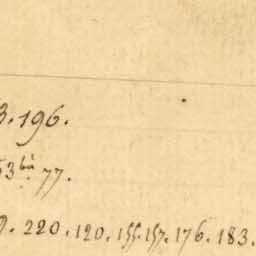 3. 196.
53 bis 77.
9. 220. 120. 155. 157. 176. 183.